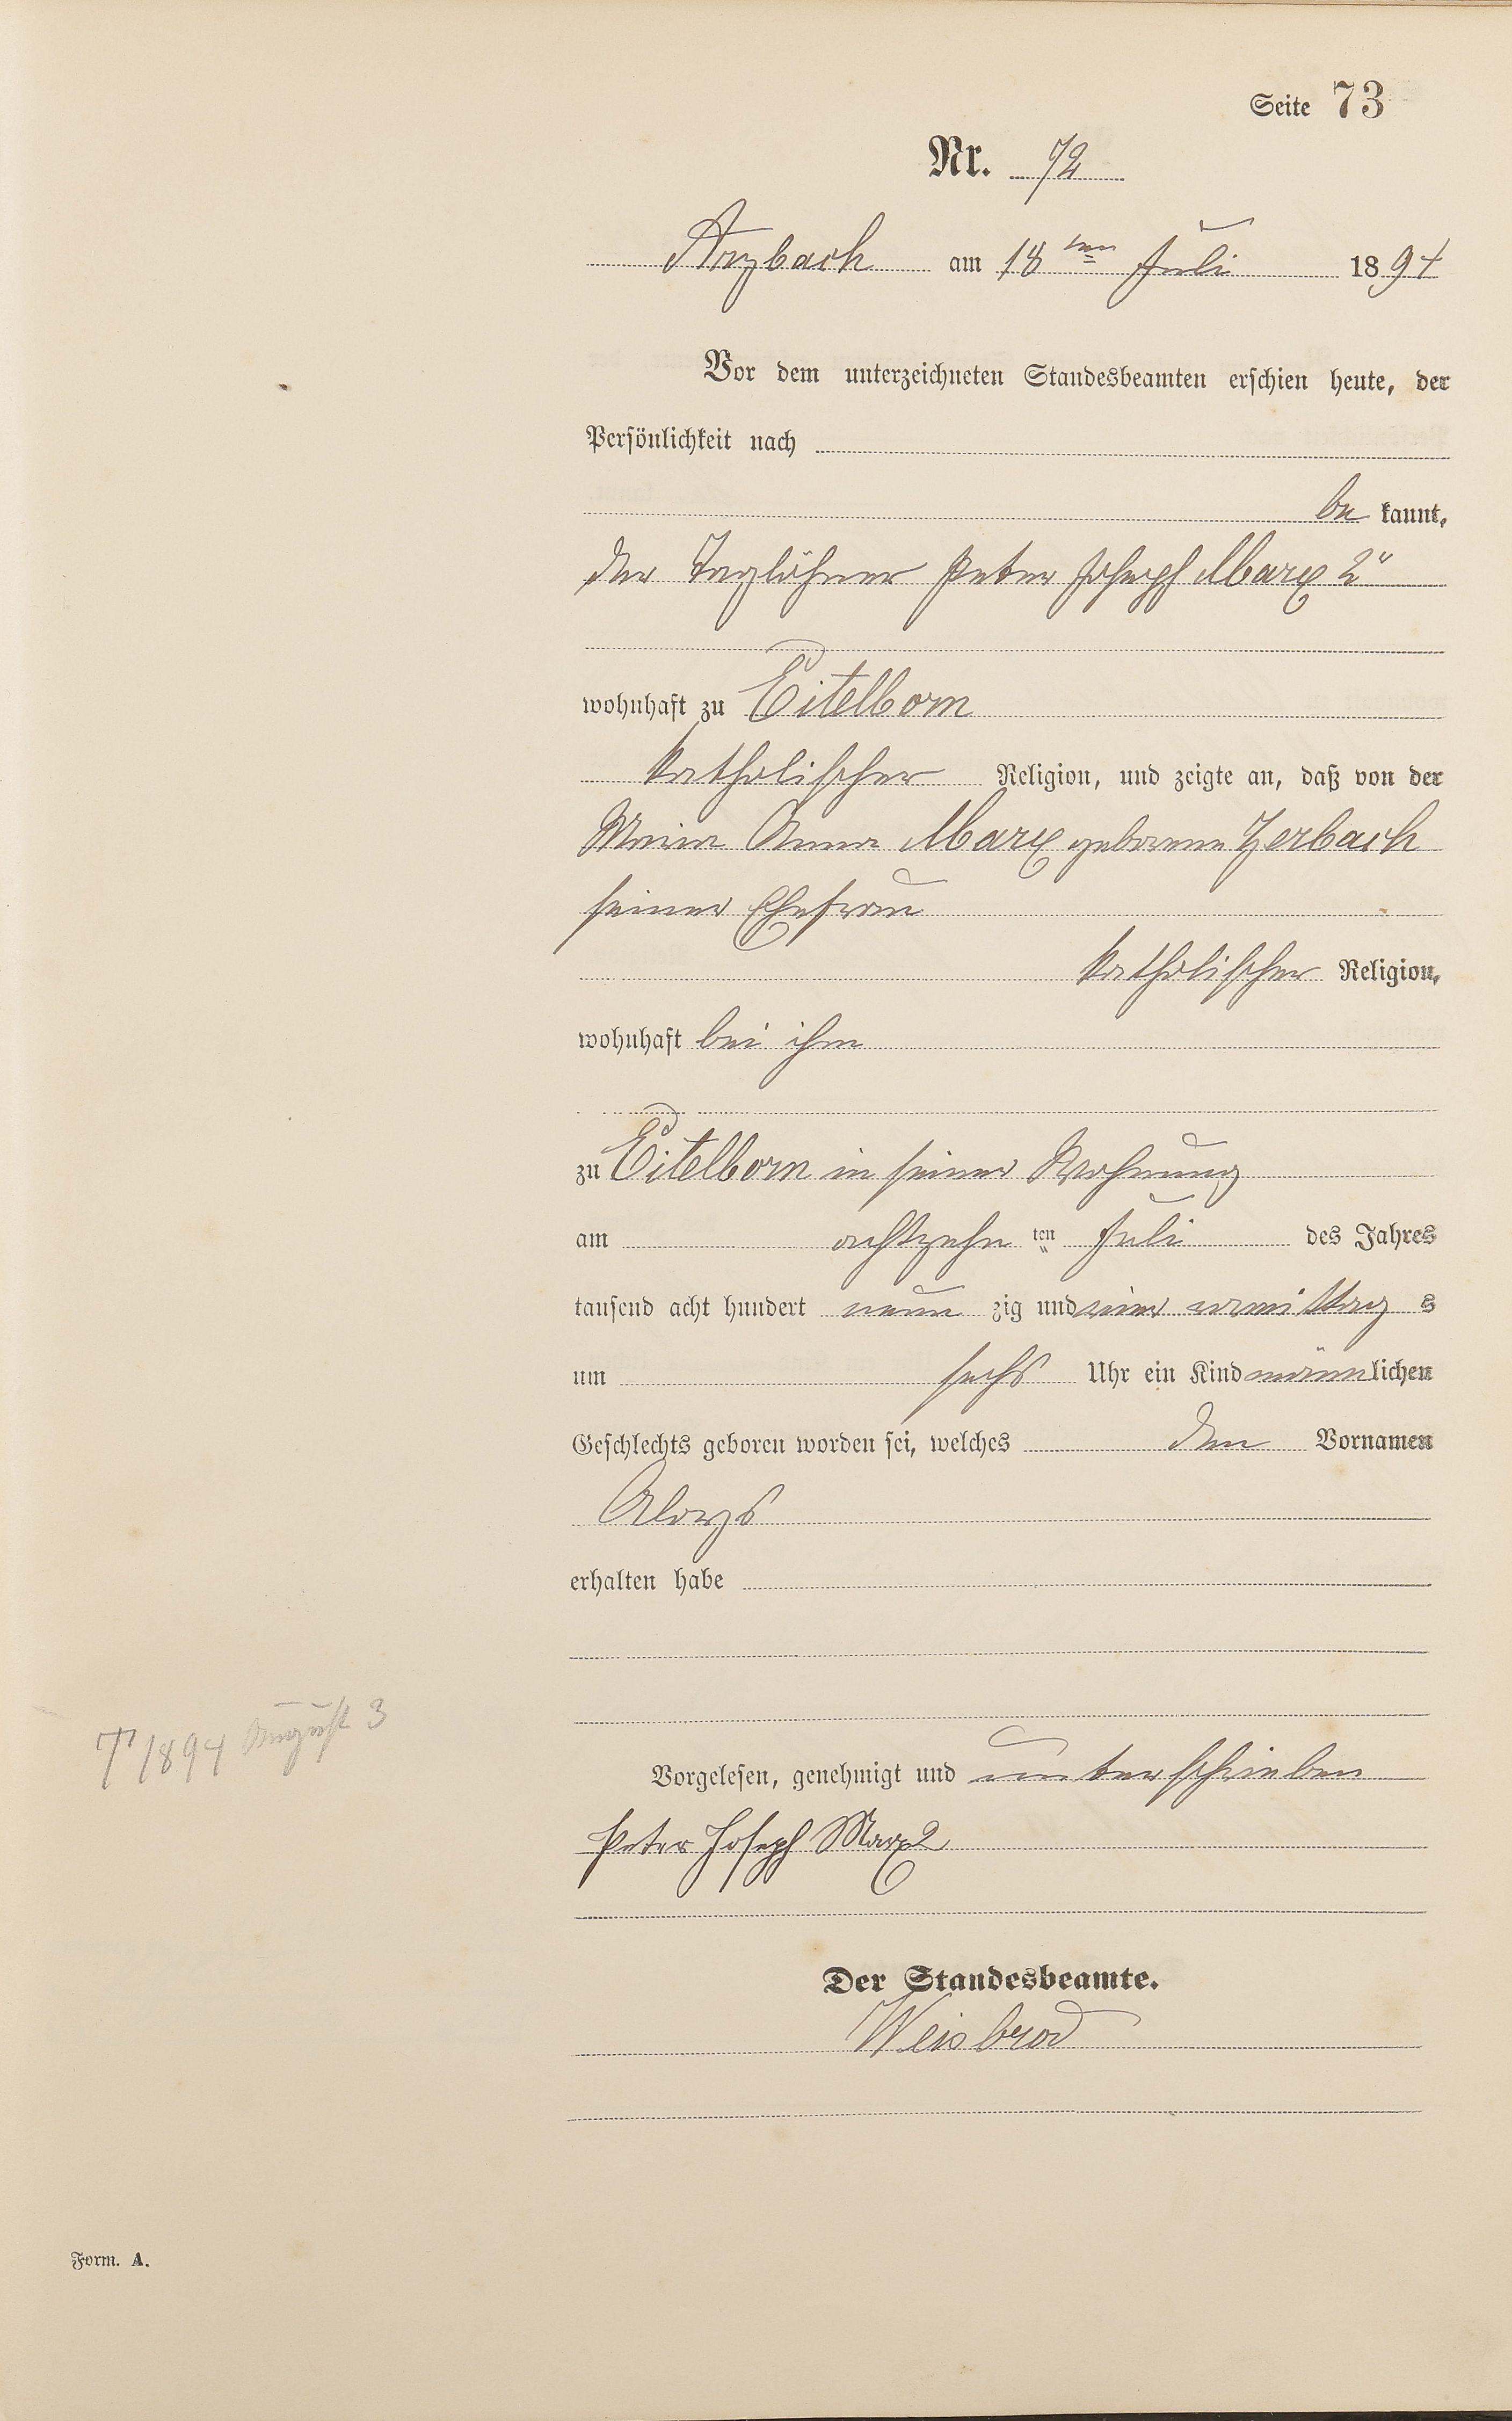 Seite 73
Nr. 72
Arzbach am 18ten Juli 1894
Vor dem unterzeichneten Standesbeamten erschien heute, der
Persönlichkeit nach
be kannt,
der Taglöhner Peter Joseph Marx 2r
wohnhaft zu Eitelborn
katholischer Religion, und zeigte an, daß von der
Maria Anna Marx geborene Zerbach
seiner Ehefrau
katholischer Religion,
wohnhaft bei ihm
zu Eitelborn in seiner Wohnung
am achtzehn ten Juli des Jahres
tausend acht hundert neun zig und vier vormittag s
um sechs Uhr ein Kind männlichen
Geschlechts geboren worden sei, welches den Vornamen
Aloys
erhalten habe
T 1894 August 3
Vorgelesen, genehmigt und unterschrieben
Peter Joseph Marx 2
Der Standesbeamte.
Weisbrod
Form. A.